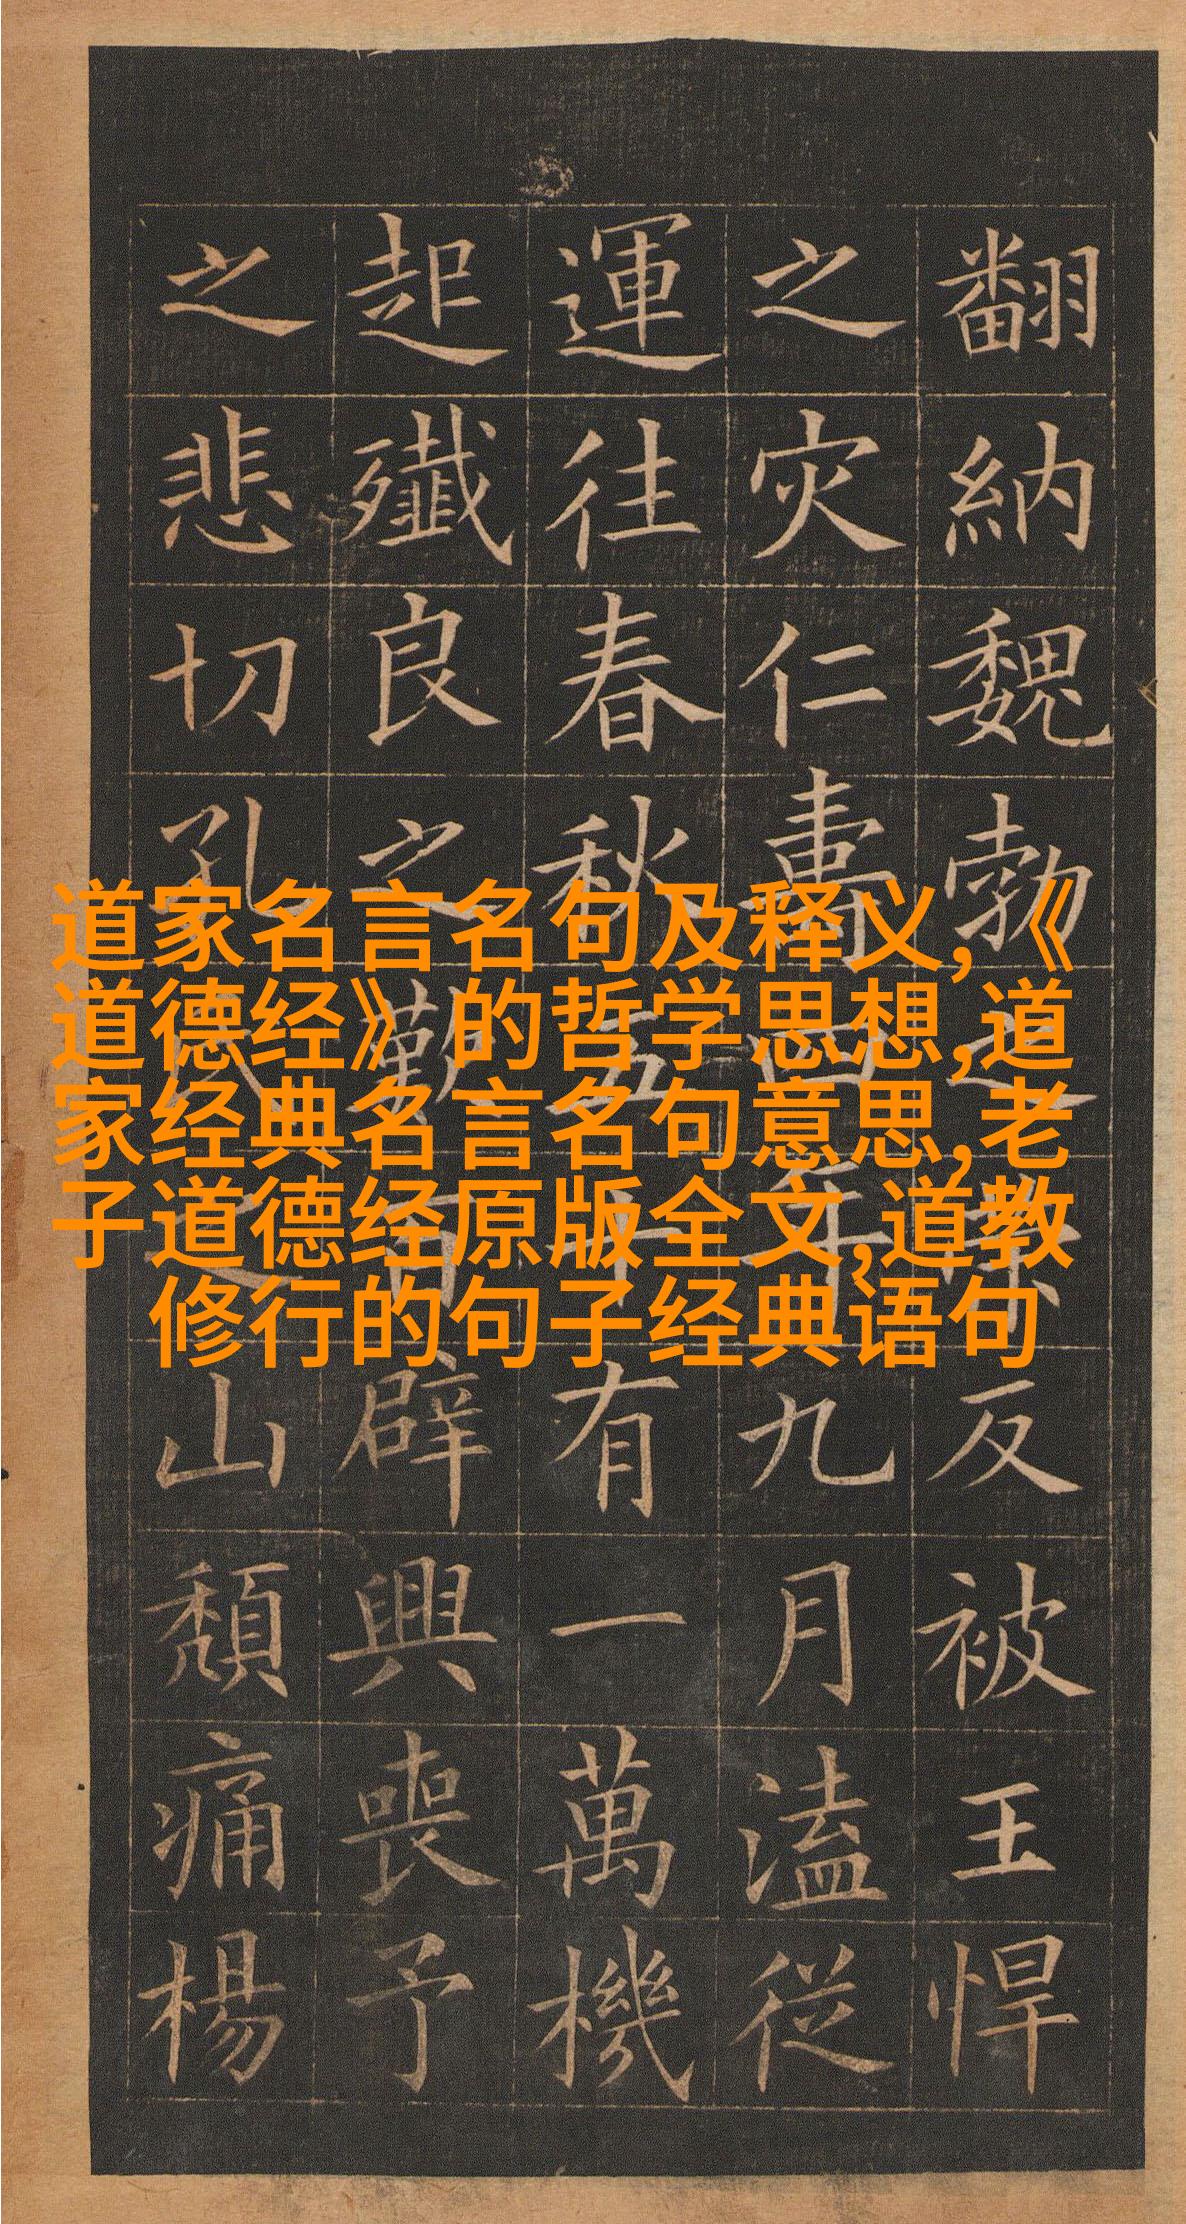 翻納魏勃之反被王悍
之灾仁壽四年九月溘從
運往春秋五十有一萬機
起殲良之歎百辟興喪予
之悲切孔氏之山頹痛楊
道家名言名句及释义,《
道德经》的哲学思想,道
家经典名言名句意思,老
子道德经原版全文,道教
修行的句子经典语句